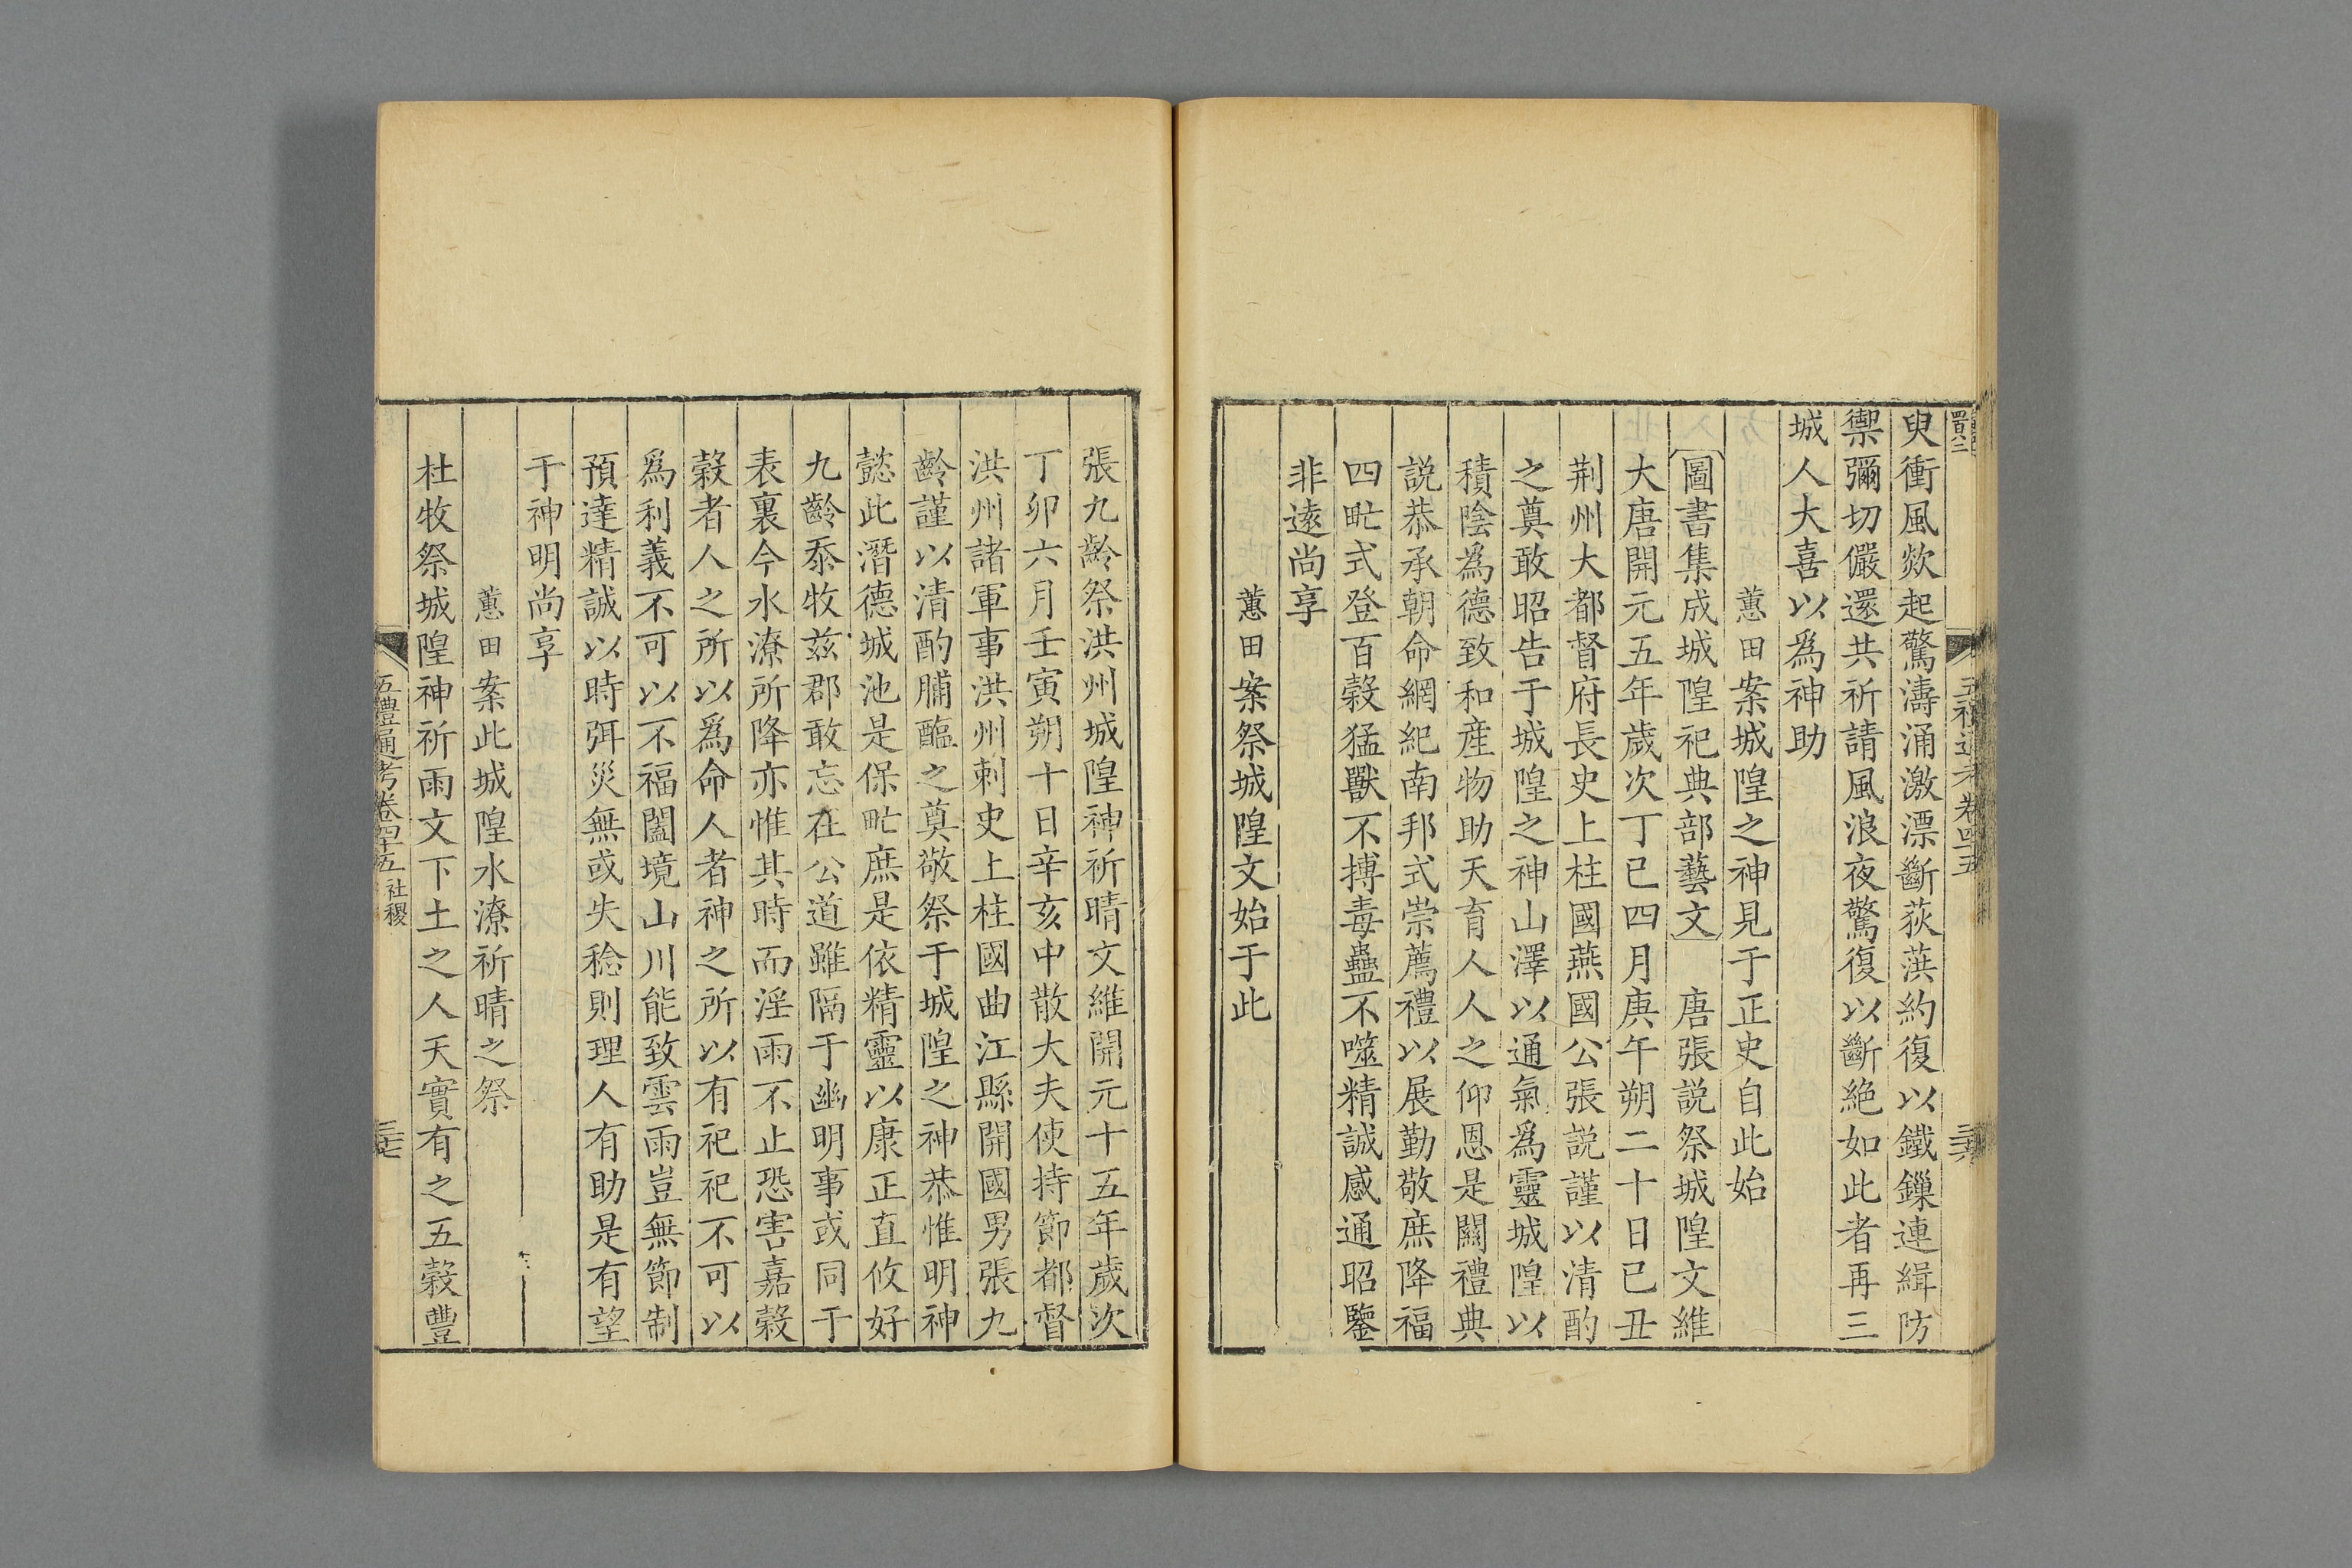 臾衝風欻起驚濤涌激漂斷荻葓約復以鐵鏁連緝防
禦彌切儼還共祈請風浪夜驚復以斷絶如此者再三
城人大喜以爲神助
蕙田案城隍之神見于正史自此始
圖書集成城隍祀典部藝文 唐張説祭城隍文維
大唐開元五年歲次丁巳四月庚午朔二十日己丑
荆州大都督府長史上柱國燕國公張説謹以清酌
之奠敢昭告于城隍之神山澤以通氣爲靈城隍以
積陰爲德致和産物助天育人人之仰恩是關禮典
説恭承朝命綱紀南邦式崇薦禮以展勤敬庶降福
四甿式登百穀猛獸不搏毒蠱不噬精誠感通昭鑒
非遠尚享
蕙田案祭城隍文始于此
張九齡祭洪州城隍神祈晴文維開元十五年歲次
丁卯六月壬寅朔十日辛亥中散大夫使持節都督
洪州諸軍事洪州刺史上柱國曲江縣開國男張九
齡謹以清酌脯醢之奠敬祭于城隍之神恭惟明神
懿此潛德城池是保甿庶是依精靈以康正直攸好
九齡忝牧兹郡敢忘在公道雖隔于幽明事或同于
表裏今水潦所降亦惟其時而淫雨不止恐害嘉穀
穀者人之所以爲命人者神之所以有祀祀不可以
爲利義不可以不福闔境山川能致雲雨豈無節制
預達精誠以時弭災無或失稔則理人有助是有望
于神明尚享
蕙田案此城隍水潦祈晴之祭
杜牧祭城隍神祈雨文下土之人天實有之五穀豐
五禮通考卷四十五 社稷 三七